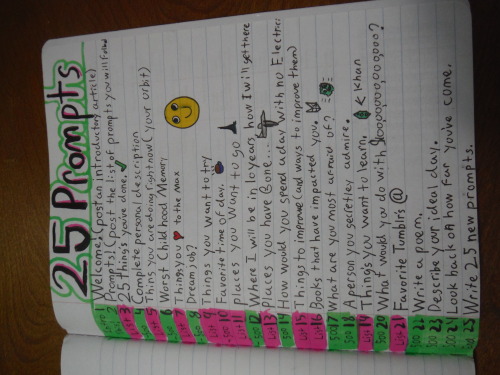 25 Prompts
1 Welcome! (post an introductory article)
2 Prompts! (Post the list of prompts you will follow)
3 25 Things you've done.
4 Complete personal description
5 Things you are doing right now (your orbit)
6 Worst Childhood Memory
7 Things you to the max
8 Dream job?
9 Things you want to try
10 Favorite time of day.
11 places you want to go
12 Where I will be in 10 years how I will get there
13 Places you have gone...
14 How would you spend a day with no Electric?
15 Things to improve (and ways to improve them)
16 Books that have impacted you.
17 What are you most afraid of?
18 A person you secretley admire.
19 Things you want to learn. Khan
20 What would you do with $
21 Favorite Tumblrs @
22 Write a poem.
23 Describe your ideal day.
24 Look back on how far you've come.
25 Write 25 new prompts.